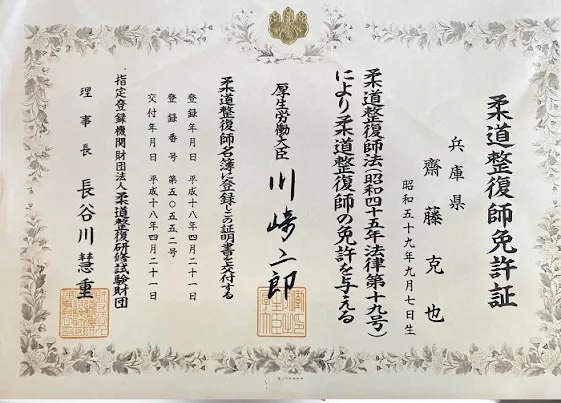 柔道整復師免許証
兵庫県
齋藤克也
昭和五十九年九月七日生
柔道整復師法(昭和四十五年法律第十九号)
により柔道整復師の免許を与える
厚生労働大臣 川崎二郎
柔道整復師名簿に登録しこの証明書を交付する
登録年月日 平成十八年四月二十一日
登録番号 第五〇五五二号
交付年月日 平成十八年四月二十一日
指定登録機関財団法人柔道整復研修試験財団
理事長 長谷川慧重